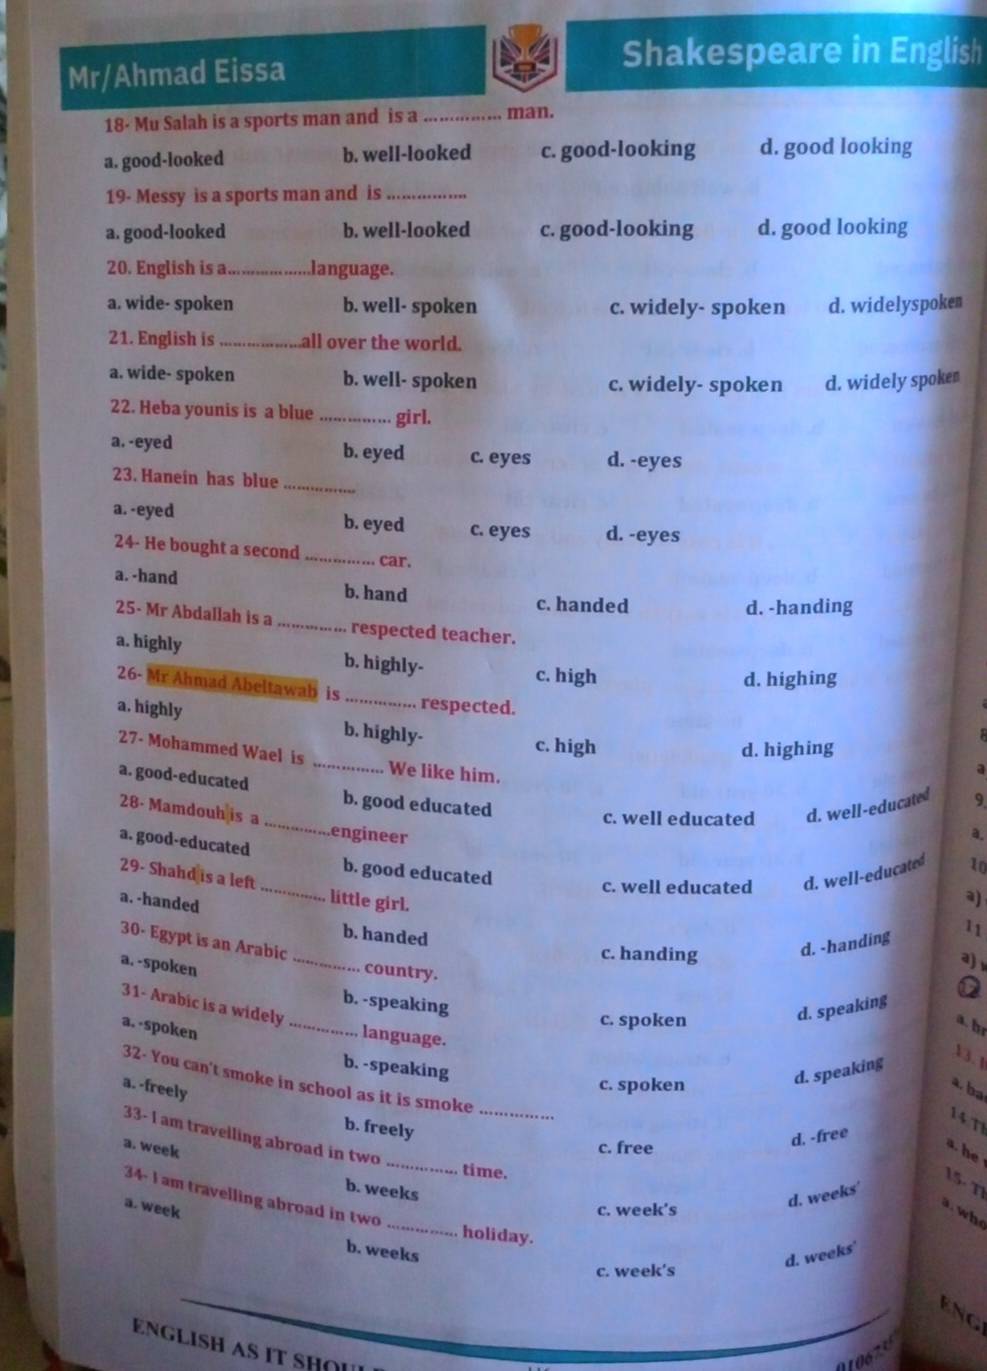 Mr/Ahmad Eissa
Shakespeare in English
18- Mu Salah is a sports man and is a .............. man.
a. good-looked b. well-looked c. good-looking d. good looking
19- Messy is a sports man and is ...............
a. good-looked b. well-looked c. good-looking d. good looking
20. English is a.................language.
a. wide- spoken b. well- spoken c. widely- spoken d. widelyspoken
21. English is ................all over the world.
a. wide- spoken b. well- spoken c. widely- spoken d. widely spoken
22. Heba younis is a blue .............. girl.
a. -eyed b. eyed c. eyes d. -eyes
23. Hanein has blue ..............
a. -eyed b. eyed c. eyes d. -eyes
24- He bought a second .............. car.
a. -hand b. hand c. handed d. -handing
25- Mr Abdallah is a .............. respected teacher.
a. highly b. highly- c. high d. highing
26- Mr Ahmad Abeltawab is .............. respected.
a. highly b. highly- c. high d. highing
27- Mohammed Wael is .............. We like him.
a. good-educated b. good educated c. well educated d. well-educated
28- Mamdouh is a .............engineer
a. good-educated b. good educated c. well educated d. well-educated
29- Shahd is a left ............. little girl.
a. -handed b. handed c. handing d. -handing
30- Egypt is an Arabic ............. country.
a. -spoken b. -speaking c. spoken d. speaking
31- Arabic is a widely .............. language.
a. -spoken b. -speaking c. spoken d. speaking
32- You can't smoke in school as it is smoke ..............
a. -freely b. freely c. free d. -free
33- I am travelling abroad in two .............. time.
a. week b. weeks c. week's d. weeks'
34- I am travelling abroad in two .............. holiday.
a. week b. weeks c. week's d. weeks'
ENGLISH AS IT